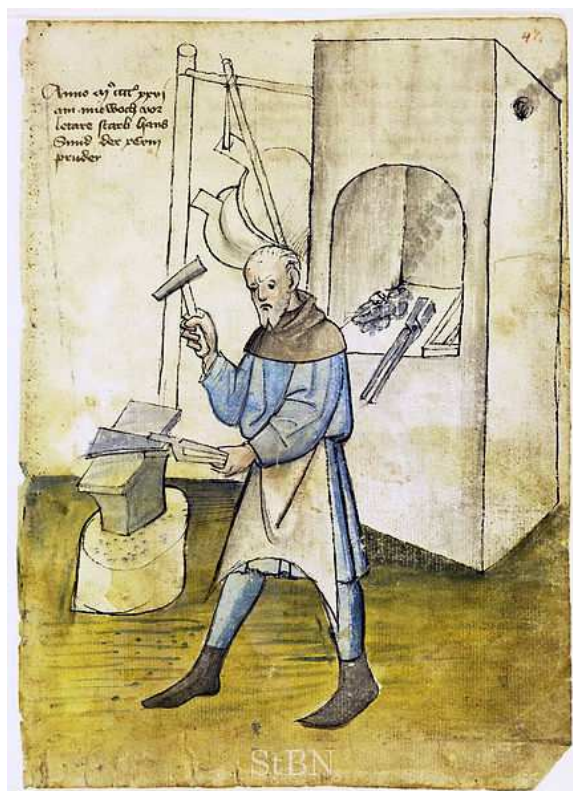 47.
Anno m° cccc° xxvi
am mitwoch vor
letare starb hans
Smid der xcviii
pruder
StBN